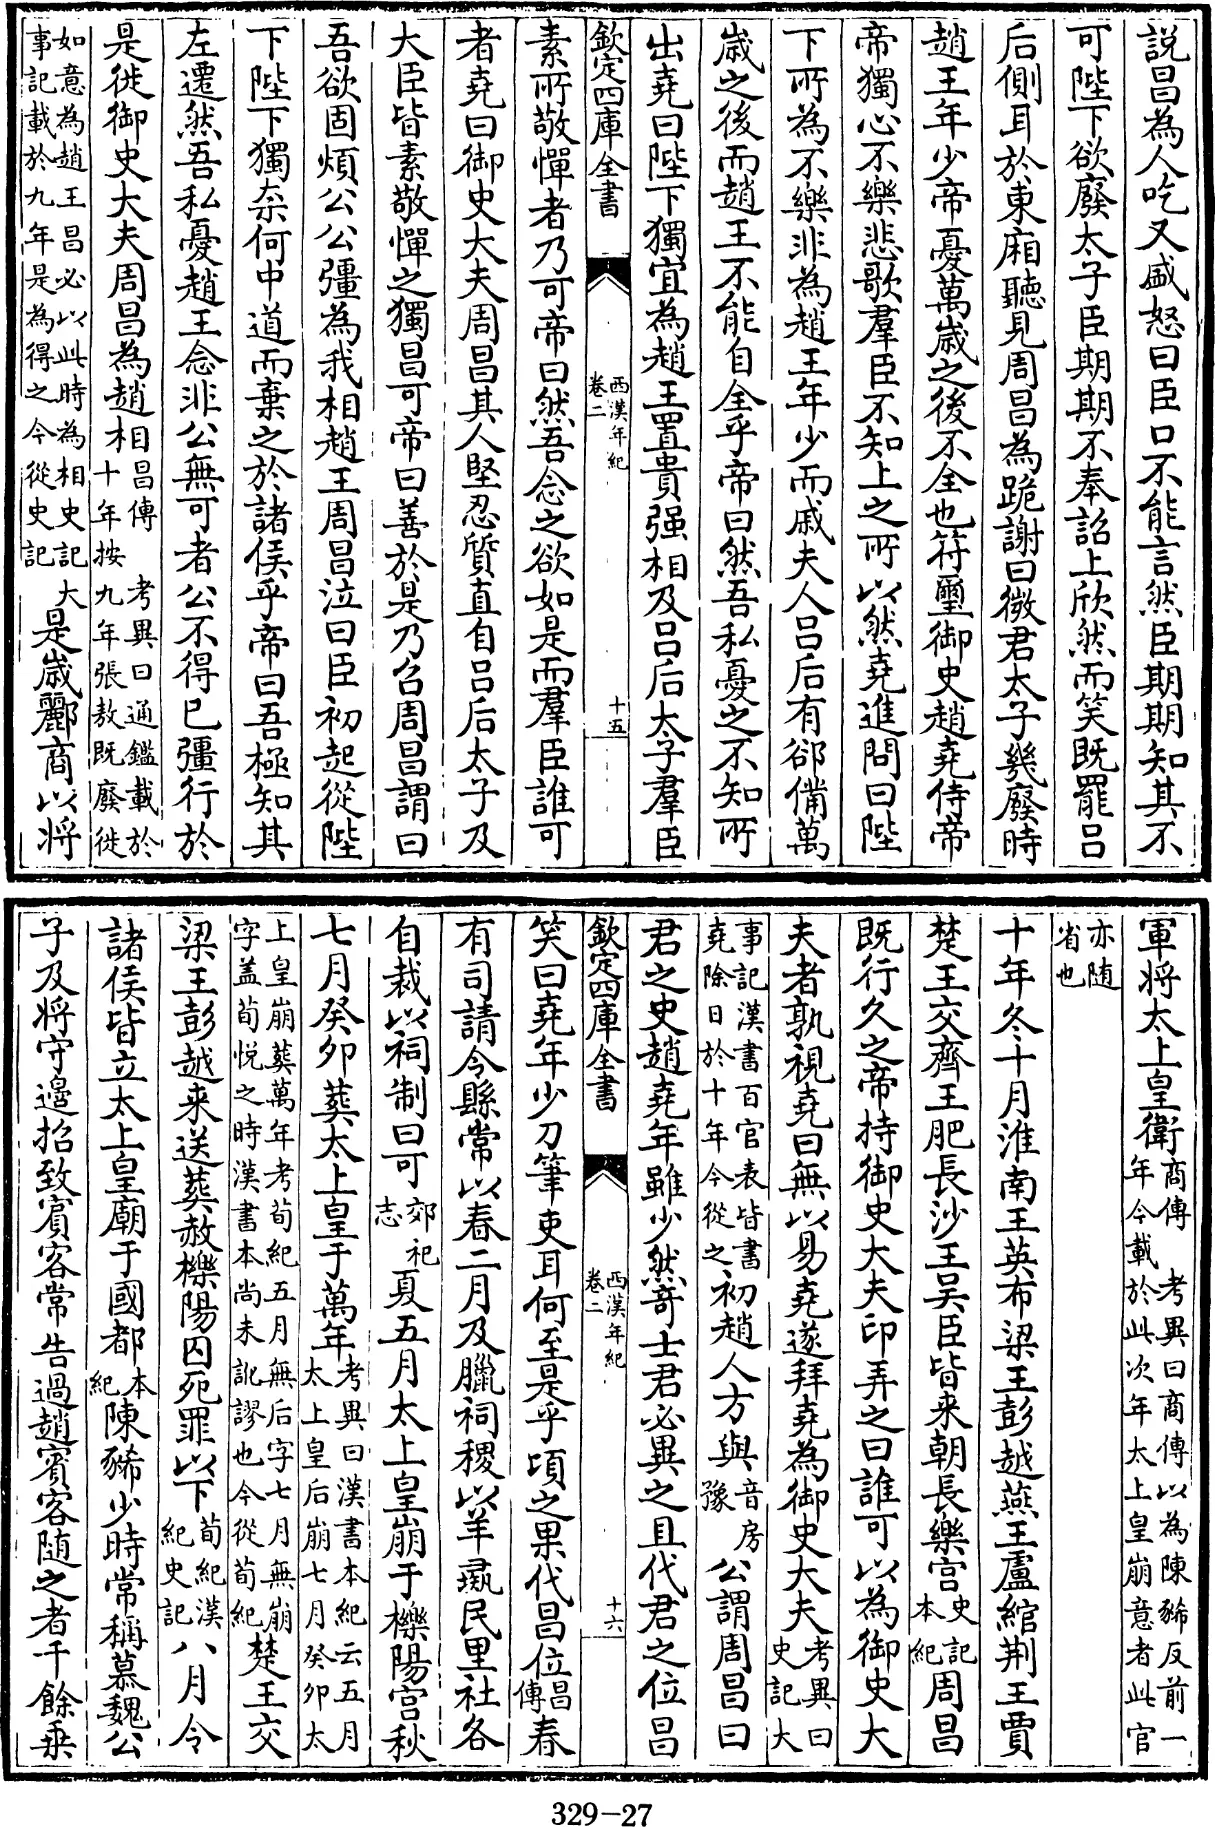 說昌為人吃又盛怒曰臣口不能言然臣期期知其不
可陛下欲廢太子臣期期不奉詔上欣然而笑既罷呂
后側耳於東廂聽見周昌為跪謝曰微君太子幾廢時
趙王年少帝憂萬歲之後不全也符璽御史趙堯侍帝
帝獨心不樂悲歌羣臣不知上之所以然堯進問曰陛
下所為不樂非為趙王年少而戚夫人呂后有郤備萬
歲之後而趙王不能自全乎帝曰然吾私憂之不知所
出堯曰陛下獨宜為趙王置貴强相及呂后太子羣臣
欽定四庫全書
西漢年紀
卷二
十五
素所敬憚者乃可帝曰然吾念之欲如是而羣臣誰可
者堯曰御史大夫周昌其人堅忍質直自呂后太子及
大臣皆素敬憚之獨昌可帝曰善於是乃召周昌謂曰
吾欲固煩公公彊為我相趙王周昌泣曰臣初起從陛
下陛下獨奈何中道而棄之於諸侯乎帝曰吾極知其
左遷然吾私憂趙王念非公無可者公不得已彊行於
是徙御史大夫周昌為趙相昌傳 考異曰通鑑載於
十年按九年張敖既廢徙
如意為趙王昌必以此時為相史記大
事記載於九年是為得之今從史記
是歲酈商以將
軍將太上皇衛商傳 考異曰商傳以為陳豨反前一
年今載於此次年太上皇崩意者此官
亦随
省也
十年冬十月淮南王英布梁王彭越燕王盧綰荆王賈
楚王交齊王肥長沙王吳臣皆来朝長樂宫史記
本紀
周昌
既行久之帝持御史大夫印弄之曰誰可以為御史大
夫者孰視堯曰無以易堯遂拜堯為御史大夫考異曰
史記大
事記漢書百官表皆書
堯除日於十年今從之
初趙人方與音房
豫
公謂周昌曰
君之史趙堯年雖少然奇士君必異之且代君之位昌
欽定四庫全書
西漢年紀
卷二
十六
笑曰堯年少刀筆吏耳何至是乎頃之果代昌位昌
傳
春
有司請令縣常以春二月及臘祠稷以羊彘民里社各
自裁以祠制曰可郊祀
志
夏五月太上皇崩于櫟陽宫秋
七月癸卯葬太上皇于萬年考異曰漢書本紀云五月
太上皇后崩七月癸卯太
上皇崩葬萬年考荀紀五月無后字七月無崩
字盖荀悦之時漢書本尚未訛謬也今從荀紀
楚王交
梁王彭越来送葬赦櫟陽囚死罪以下荀紀漢
紀史記
八月令
諸侯皆立太上皇廟于國都本
紀
陳豨少時常稱慕魏公
子及將守邊招致賓客常告過趙賓客随之者千餘乗
329-27